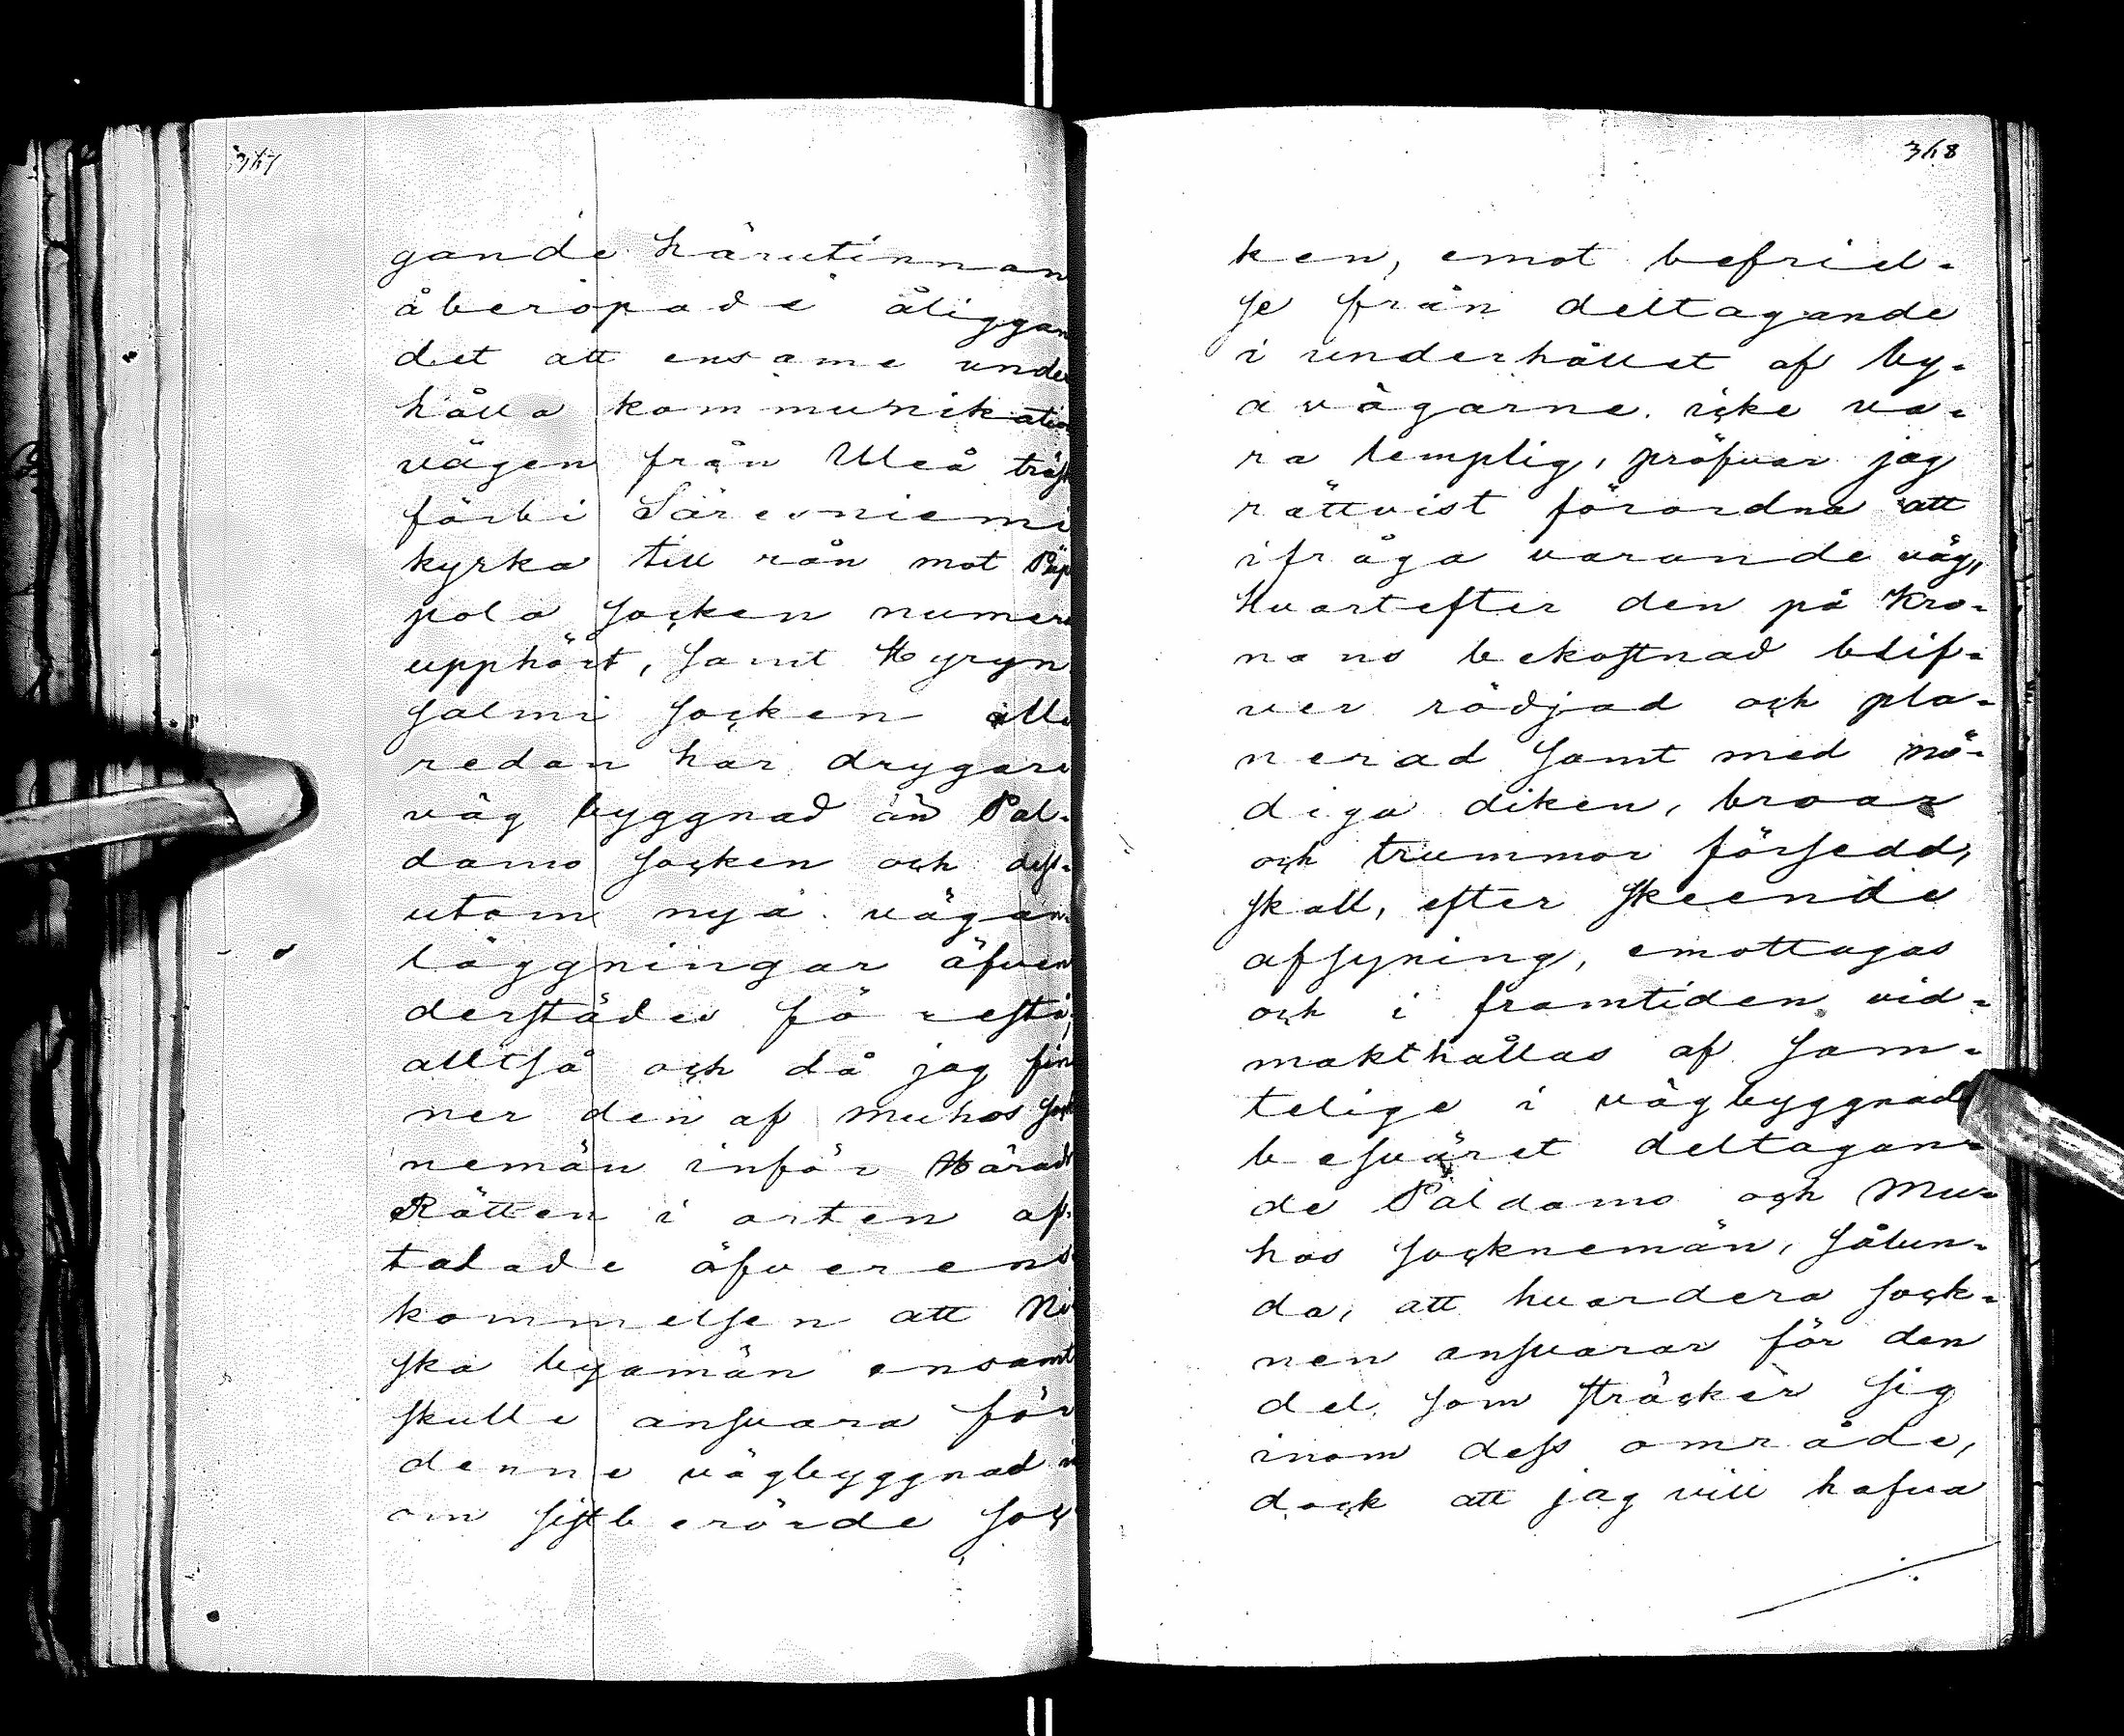 347
gande härutinnan
åberopade åliggan
det att ensame unde
hålla kommunikatio
vägen från Uleå träsk
förbi Säresniemi
kyrka till rån mot Pip
pola socken numera
upphört, samt Hyryn
salmi socken alle
redan har drygare
väg byggnad än Pal-
damo socken och dess-
utom nya vägan-
läggningar äfven
derstädes förestå,
alltså och då jag fin
ner den af Muhos sock
nemän inför Härads
Rätten i orten af-
talade öfverens
kommelsen att Ni
ska byamän ensamt
skulle ansvara för
denne vägbyggnad in
om sistberörde soc
348
ken, emot befriel-
se från deltagande
i underhållet af by-
a vägarne icke va-
ra lemplig, pröfvar jag
rättvist förordna att
ifråga varande väg,
hvartefter den på Kro-
nans bekostnad blif-
ver rödjad och pla-
nerad samt med nö-
diga diken, broar
och trummor försedd,
skall, efter skeende
afsyning, emottagas
och i framtiden vid-
makthållas af sam-
telige i vägbyggnads
besväret deltagan-
de Paldamo och Mu-
hos socknemän, sålun-
da, att hvardera sock-
nen ansvarar för den
del som sträcker sig
inom dess område,
dock att jag vill hafva